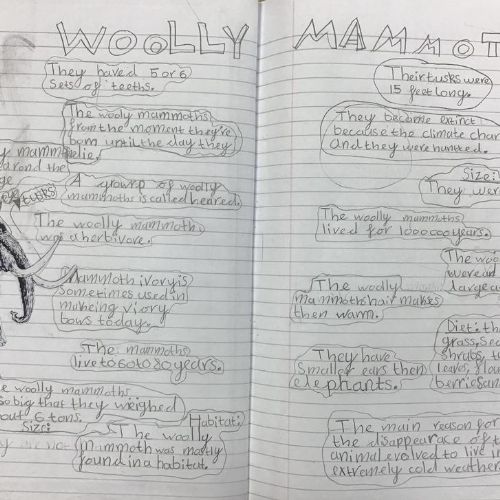 WOOLLY MAMMOT
They haved 5 or 6
sets of teeths.
The wooly mammoths
from the moment they're
born until the day they
A grourp of woolly
mammoths is called heared.
arond the
tusks
The woolly mammoth
was a herbivore.
Mammoth ivory is
sometimes used in
makeing viory
bows today.
The mammoths
live to 60 to 80 years.
woolly mammoths
so big that they weighed
6 tons.
Size:
Habitat:
The woolly
mammoth was mostly
found in a habitat.
Their tusks were
15 feet long.
They become extinct
because the climate chan
and they were hunted.
Size:
They wer
The woolly mammoths
lived for 1000000 years.
The woo
were an
large a
The woolly
mammoths hair makes
then warm.
They have
smaller ears then
elephants.
Diet: th
grass, see
shrubs, t
leaves, flow
berries an
The main reason for
the disappearce of t
animal evolved to live in
extremely cold weather